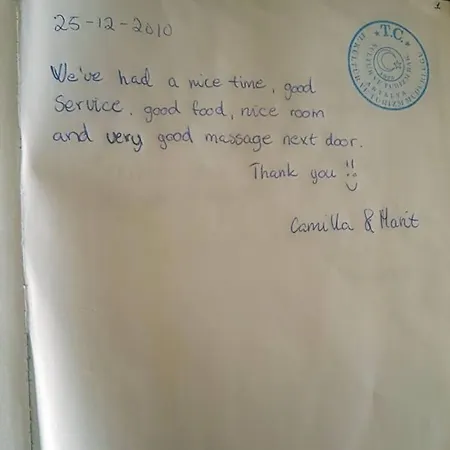 25-12-2010
1
T.C.
We've had a nice time, good
Service, good food, nice room
and very good massage next door.
Thank you !! :)
Camilla & Marit